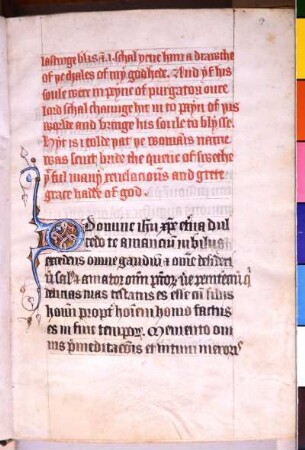 lastinge blis & i schal yeue him a drawthe
of ye chales of my godhede. And yf his
soule were in peyne of purgatory oure
lord schal chaunge hit in to peyn of yis
worlde and bringe his soule to blysse.
Hyt is i tolde yat ye womans name
was seint bride the quene of swethe
ful many reuelaciouns and grete
grace hadde of god.
O domine ihu xpe eterna dul
cedo te amancium iubilus
excedens omne gaudium & omne desideri
um salus & amator omnium peccatorum qui
delicias tuas testatus es esse cum filiis
hominum propter hominem homo factus
es in fine temporum. Memento om
nis premeditacionis et intimi meroris